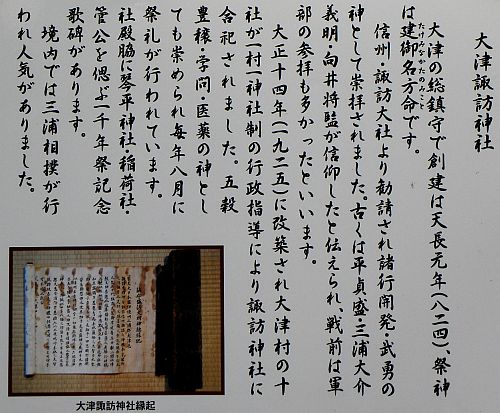 大津諏訪神社
大津の総鎮守で創建は天長元年(八二四)、祭神
は建御名方命です。
たけみなかたのみこと
信州・諏訪大社より勧請され諸行開発・武勇の
神として崇拝されました。古くは平貞盛・三浦大介
義明・向井将監が信仰したと伝えられ、戦前は軍
部の参拝も多かったといいます。
大正十四年(一九二五)に改築され大津村の十
社が一村一神社制の行政指導により諏訪神社に
合祀されました。五穀
豊穣・学問・医薬の神とし
ても崇められ毎年八月に
祭礼が行われています。
社殿脇に琴平神社・稲荷社・
菅公を偲ぶ一千年祭記念
歌碑があります。
境内では三浦相撲が行
われ人気がありました。
大津諏訪神社縁起